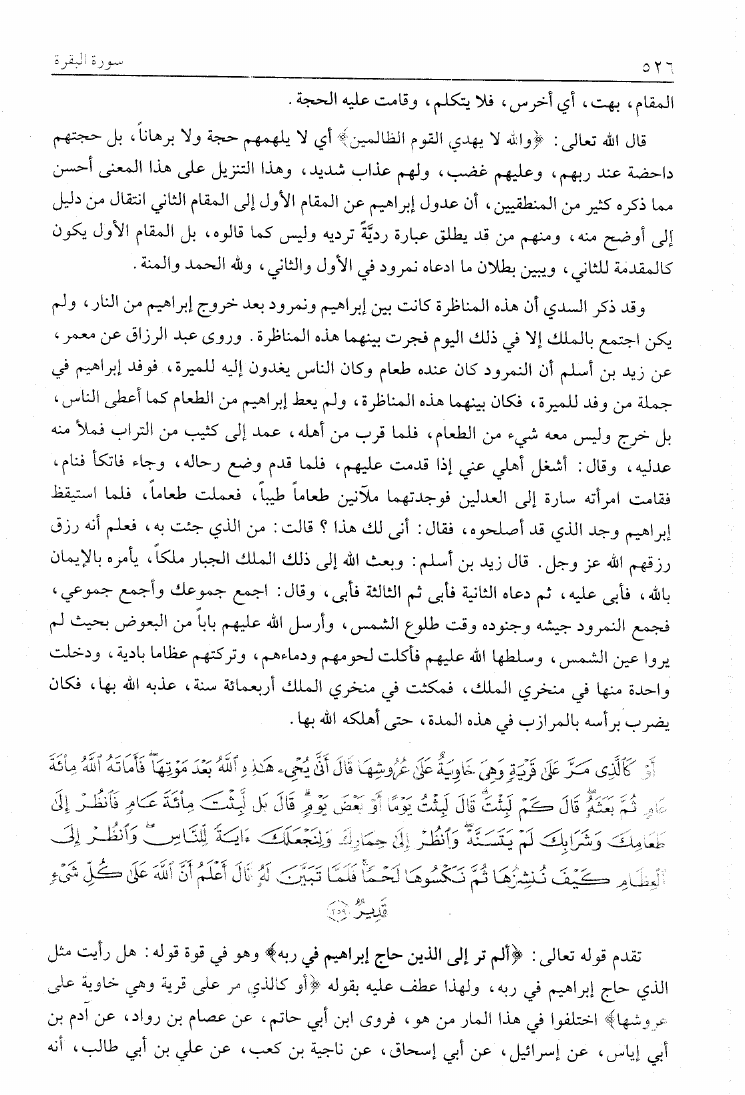 ٥٢٦ سورة البقرة
المقام، بهت، أي أخرس، فلا يتكلم، وقامت عليه الحجة.
قال الله تعالى: ﴿والله لا يهدي القوم الظالمين﴾ أي لا يلهمهم حجة ولا برهاناً، بل حجتهم
داحضة عند ربهم، وعليهم غضب، ولهم عذاب شديد، وهذا التنزيل على هذا المعنى أحسن
مما ذكره كثير من المنطقيين، أن عدول إبراهيم عن المقام الأول إلى المقام الثاني انتقال من دليل
إلى أوضح منه، ومنهم من قد يطلق عبارة رديَّةً ترديه وليس كما قالوه، بل المقام الأول يكون
كالمقدمة للثاني، ويبين بطلان ما ادعاه نمرود في الأول والثاني، ولله الحمد والمنة.
وقد ذكر السدي أن هذه المناظرة كانت بين إبراهيم ونمرود بعد خروج إبراهيم من النار، ولم
يكن اجتمع بالملك إلا في ذلك اليوم فجرت بينهما هذه المناظرة. وروى عبد الرزاق عن معمر،
عن زيد بن أسلم أن النمرود كان عنده طعام وكان الناس يغدون إليه للميرة، فوفد إبراهيم في
جملة من وفد للميرة، فكان بينهما هذه المناظرة، ولم يعط إبراهيم من الطعام كما أعطى الناس،
بل خرج وليس معه شيء من الطعام، فلما قرب من أهله، عمد إلى كثيب من التراب فملأ منه
عدليه، وقال: أشغل أهلي عني إذا قدمت عليهم، فلما قدم وضع رحاله، وجاء فاتكأ فنام،
فقامت امرأته سارة إلى العدلين فوجدتهما ملآنين طعاماً طيباً، فعملت طعاماً، فلما استيقظ
إبراهيم وجد الذي قد أصلحوه، فقال: أنى لك هذا ؟ قالت: من الذي جئت به، فعلم أنه رزق
رزقهم الله عز وجل. قال زيد بن أسلم: وبعث الله إلى ذلك الملك الجبار ملكاً، يأمره بالإيمان
بالله، فأبى عليه، ثم دعاه الثانية فأبى ثم الثالثة فأبى، وقال: اجمع جموعك وأجمع جموعي،
فجمع النمرود جيشه وجنوده وقت طلوع الشمس، وأرسل الله عليهم باباً من البعوض بحيث لم
يروا عين الشمس، وسلطها الله عليهم فأكلت لحومهم ودماءهم، وتركتهم عظاما بادية، ودخلت
واحدة منها في منخري الملك، فمكثت في منخري الملك أربعمائة سنة، عذبه الله بها، فكان
يضرب برأسه بالمرازب في هذه المدة، حتى أهلكه الله بها.
أَوْ كَٱلَّذِى مَرَّ عَلَىٰ قَرْيَةٍ وَهِىَ خَاوِيَةٌ عَلَىٰ عُرُوشِهَا قَالَ أَنَّىٰ يُحْىِۦ هَـٰذِهِ ٱللَّهُ بَعْدَ مَوْتِهَا ۖ فَأَمَاتَهُ ٱللَّهُ مِا۟ئَةَ
عَامٍ ثُمَّ بَعَثَهُۥ ۖ قَالَ كَمْ لَبِثْتَ ۖ قَالَ لَبِثْتُ يَوْمًا أَوْ بَعْضَ يَوْمٍ ۖ قَالَ بَل لَّبِثْتَ مِا۟ئَةَ عَامٍ فَٱنظُرْ إِلَىٰ
طَعَامِكَ وَشَرَابِكَ لَمْ يَتَسَنَّهْ ۖ وَٱنظُرْ إِلَىٰ حِمَارِكَ وَلِنَجْعَلَكَ ءَايَةً لِّلنَّاسِ ۖ وَٱنظُرْ إِلَى
ٱلْعِظَامِ كَيْفَ نُنشِزُهَا ثُمَّ نَكْسُوهَا لَحْمًا ۚ فَلَمَّا تَبَيَّنَ لَهُۥ قَالَ أَعْلَمُ أَنَّ ٱللَّهَ عَلَىٰ كُلِّ شَىْءٍ
قَدِيرٌ ﴿٢٥٩﴾
تقدم قوله تعالى: ﴿ألم تر إلى الذين حاج إبراهيم في ربه﴾ وهو في قوة قوله: هل رأيت مثل
الذي حاج إبراهيم في ربه، ولهذا عطف عليه بقوله ﴿أو كالذي مر على قرية وهي خاوية على
عروشها﴾ اختلفوا في هذا المار من هو، فروى ابن أبي حاتم، عن عصام بن رواد، عن آدم بن
أبي إياس، عن إسرائيل، عن أبي إسحاق، عن ناجية بن كعب، عن علي بن أبي طالب، أنه